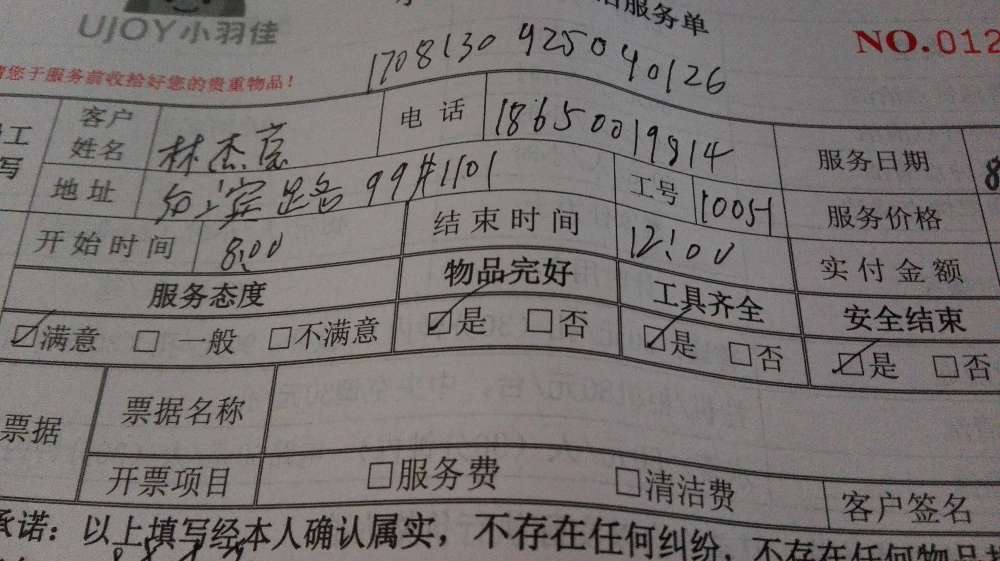 服务单
UJOY小羽佳
NO.012
请您于服务前收拾好您的贵重物品!
1708130 9250 90126
客户姓名 林杰 电话 18650019814 服务日期 8
地址 99#1101 工号 1005 服务价格
开始时间 8:00 结束时间 12:00 实付金额
服务态度 物品完好 工具齐全 安全结束
满意 一般 不满意 是 否 是 否 是 否
票据 票据名称
开票项目 服务费 清洁费 客户签名
承诺：以上填写经本人确认属实，不存在任何纠纷，不存在任何物品